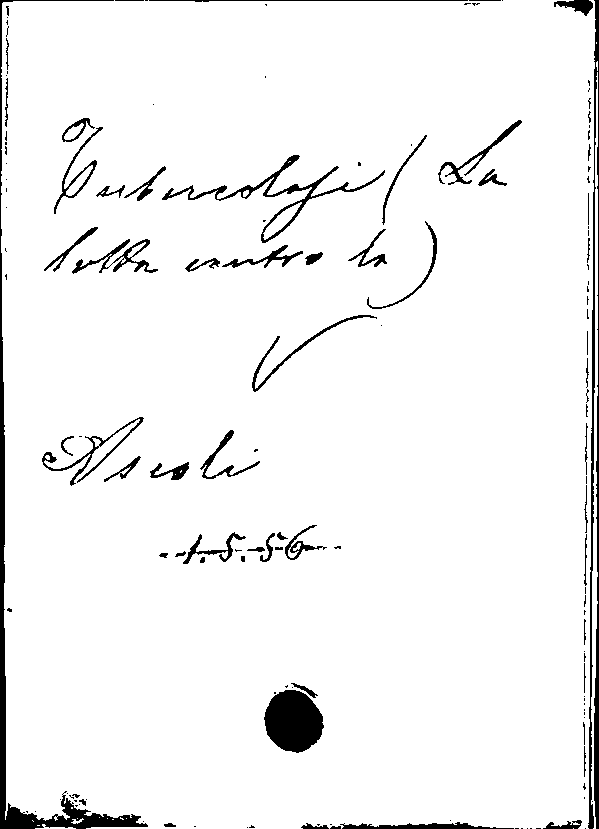 Tubercolosi (La
lotta contro la)
Ascoli
1.5.56